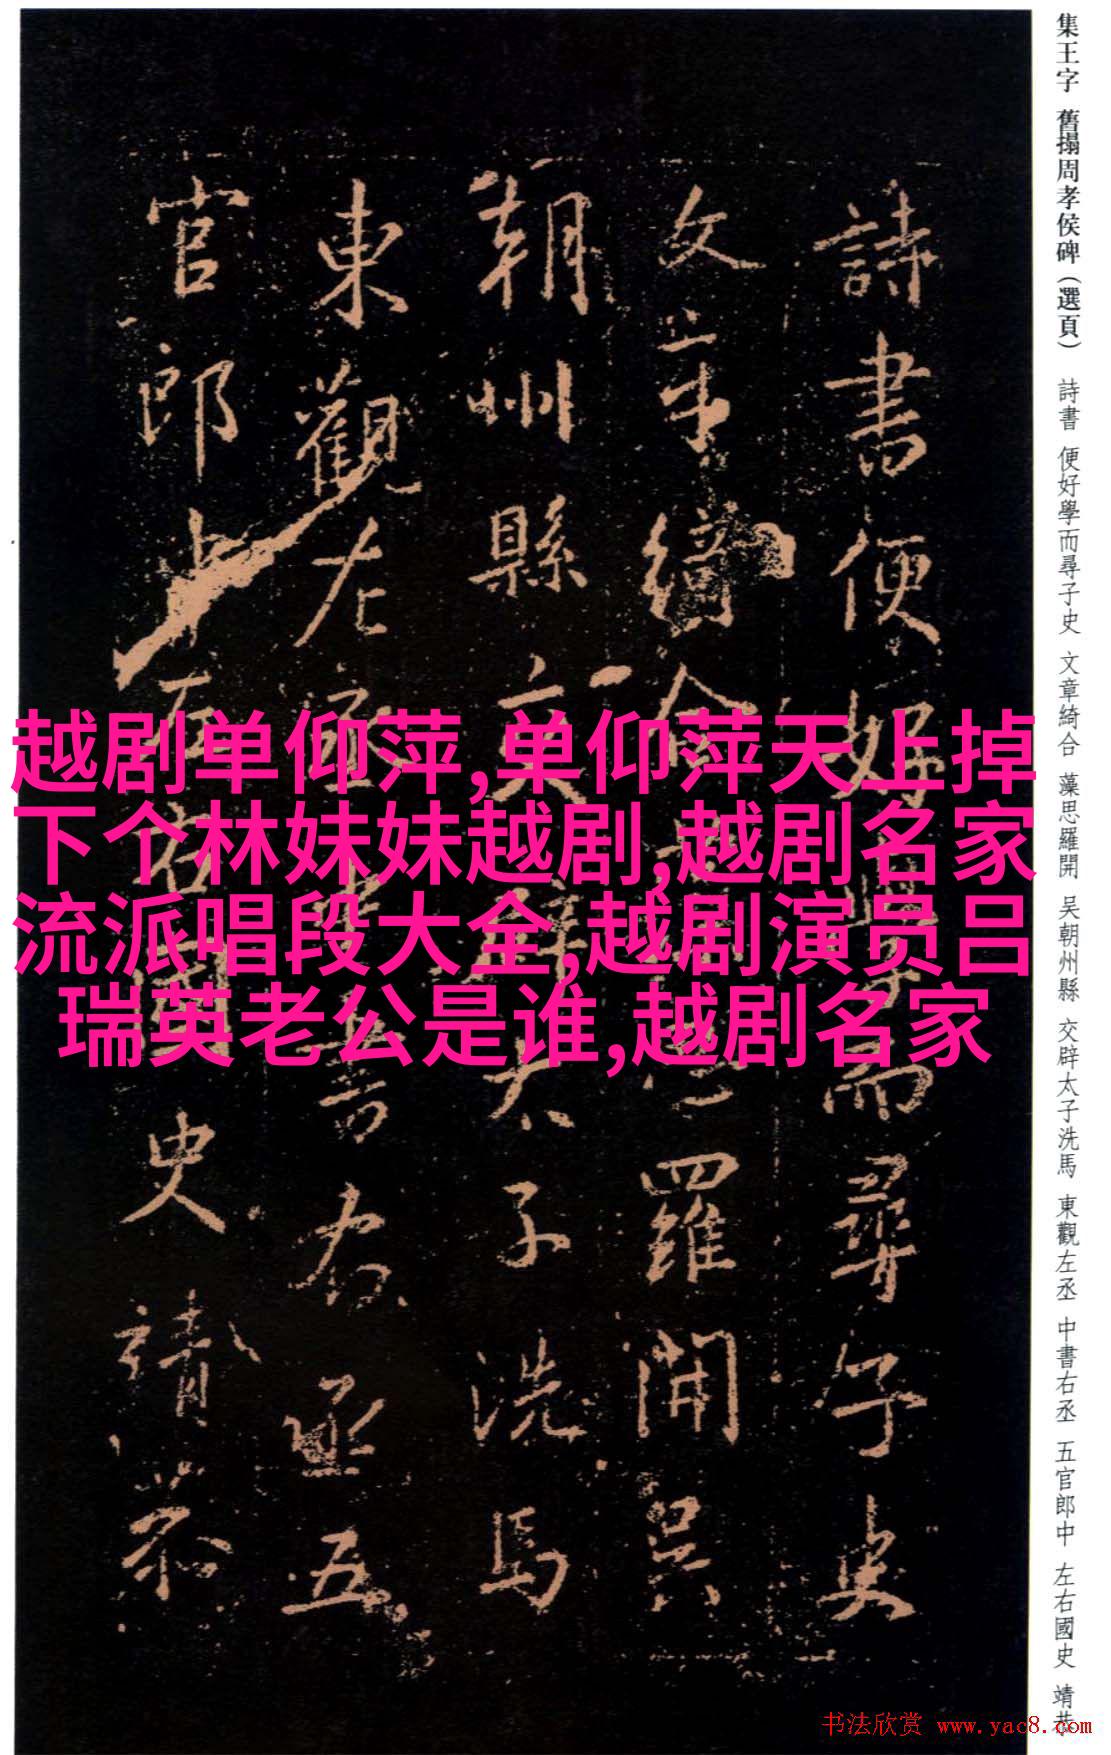 集王字 舊搨周孝侯碑(選頁) 詩書 便好學而尋子史 文章綺合 藻思羅開 吴朝州縣 交辟太子洗馬 東觀左丞 中書右丞 五官郎中 左右國史 靖恭
詩書便好學而尋子史
文章綺合藻思羅開吴
朝州縣交辟太子洗馬
東觀左丞中書右丞五
官郎中左右國史靖恭
越剧单仰萍,单仰萍天上掉
下个林妹妹越剧,越剧名家
流派唱段大全,越剧演员吕
瑞英老公是谁,越剧名家
书法欣赏 www.yac8.com